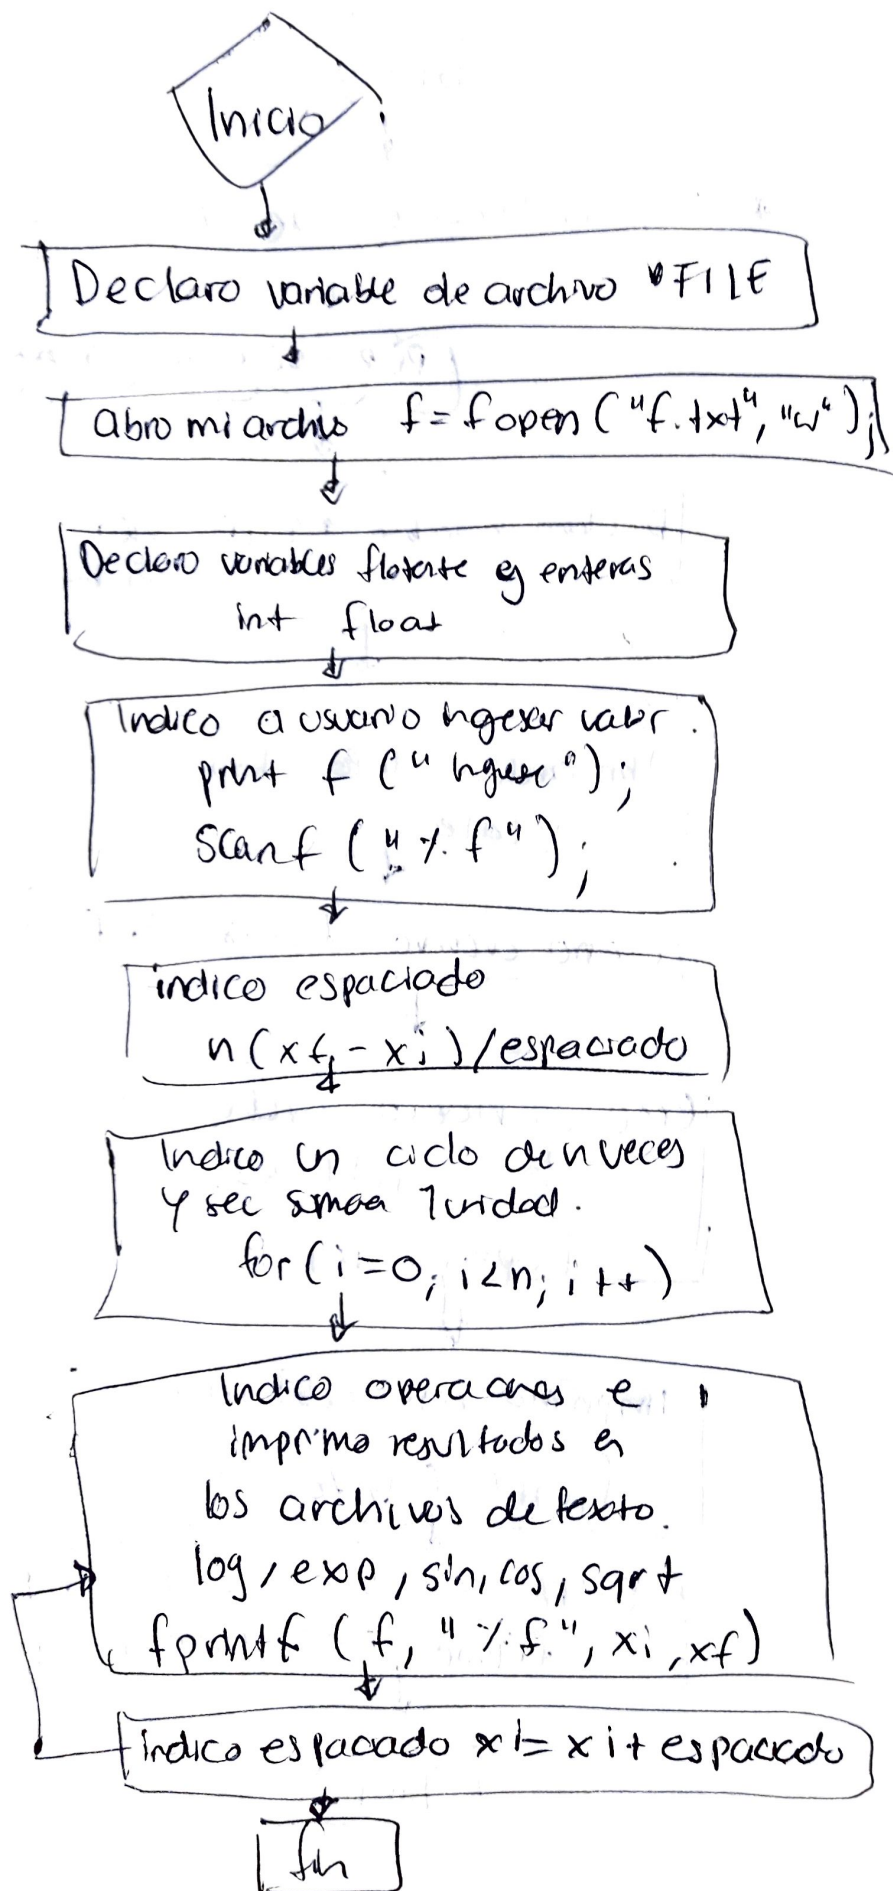 Inicio
Declaro variable de archivo *FILE
abro mi archivo f = fopen ("f.txt", "w");
Declaro variables flotante y enteras
int float
Indico a usuario ingresar valor.
printf ("Ingrese");
scanf ("%f");
indico espaciado
n(xf - xi)/espaciado
Indico un ciclo de n veces
y suma 1 unidad.
for(i=0; i<n; i++)
Indico operaciones e
imprimo resultados en
los archivos de texto.
log, exp, sin, cos, sqrt
fprintf (f, "%f", xi, xf)
indico espaciado xi= xi+ espaciado
fin